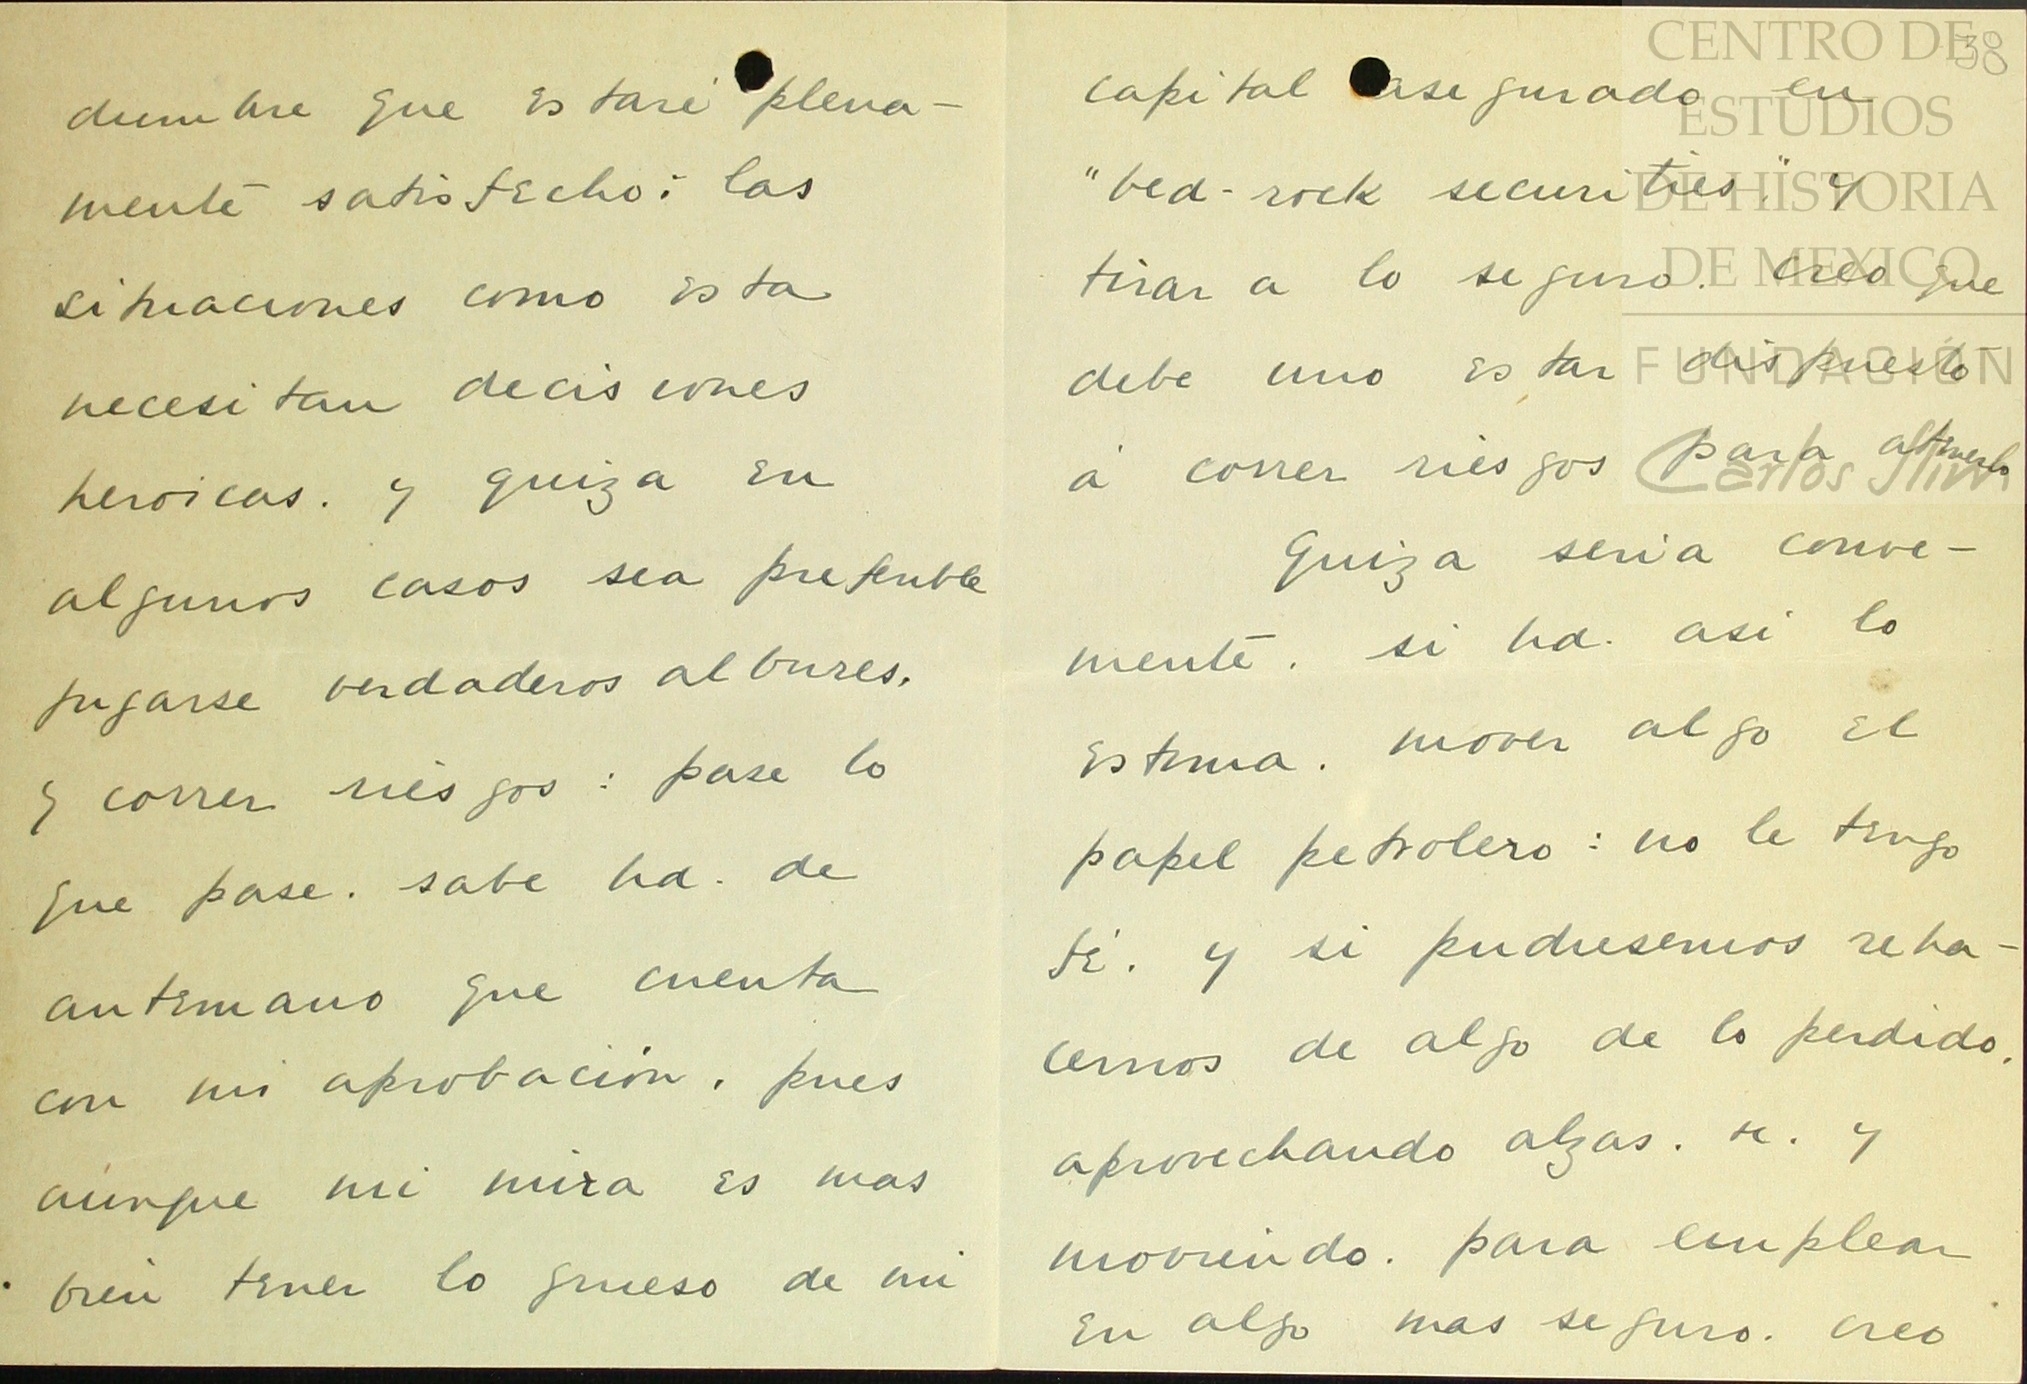 dumbre que estaré plena-
mente satisfecho: las
situaciones como esta
necesitan decisiones
heroicas. y quiza en
algunos casos sea preferible
jugarse verdaderos albures.
y correr riesgos: pase lo
que pase. sabe Ud. de
antemano que cuenta
con mi aprobación. pues
aunque mi mira es mas
bien tener lo grueso de mi
38
capital asegurado en
"bed-rock securities." y
tirar a lo seguro. creo que
debe uno estar dispuesto
á correr riesgos para
Quiza seria conve-
mente. si Ud. asi lo
estima. mover algo el
papel petrolero: no le tengo
fé. y si pudiesemos reha-
cernos de algo de lo perdido.
aprovechando alzas. &. y
moviendo. para emplear
en algo mas seguro. creo
CENTRO DE
ESTUDIOS
DE HISTORIA
DE MEXICO
FUNDACIÓN
Carlos Slim